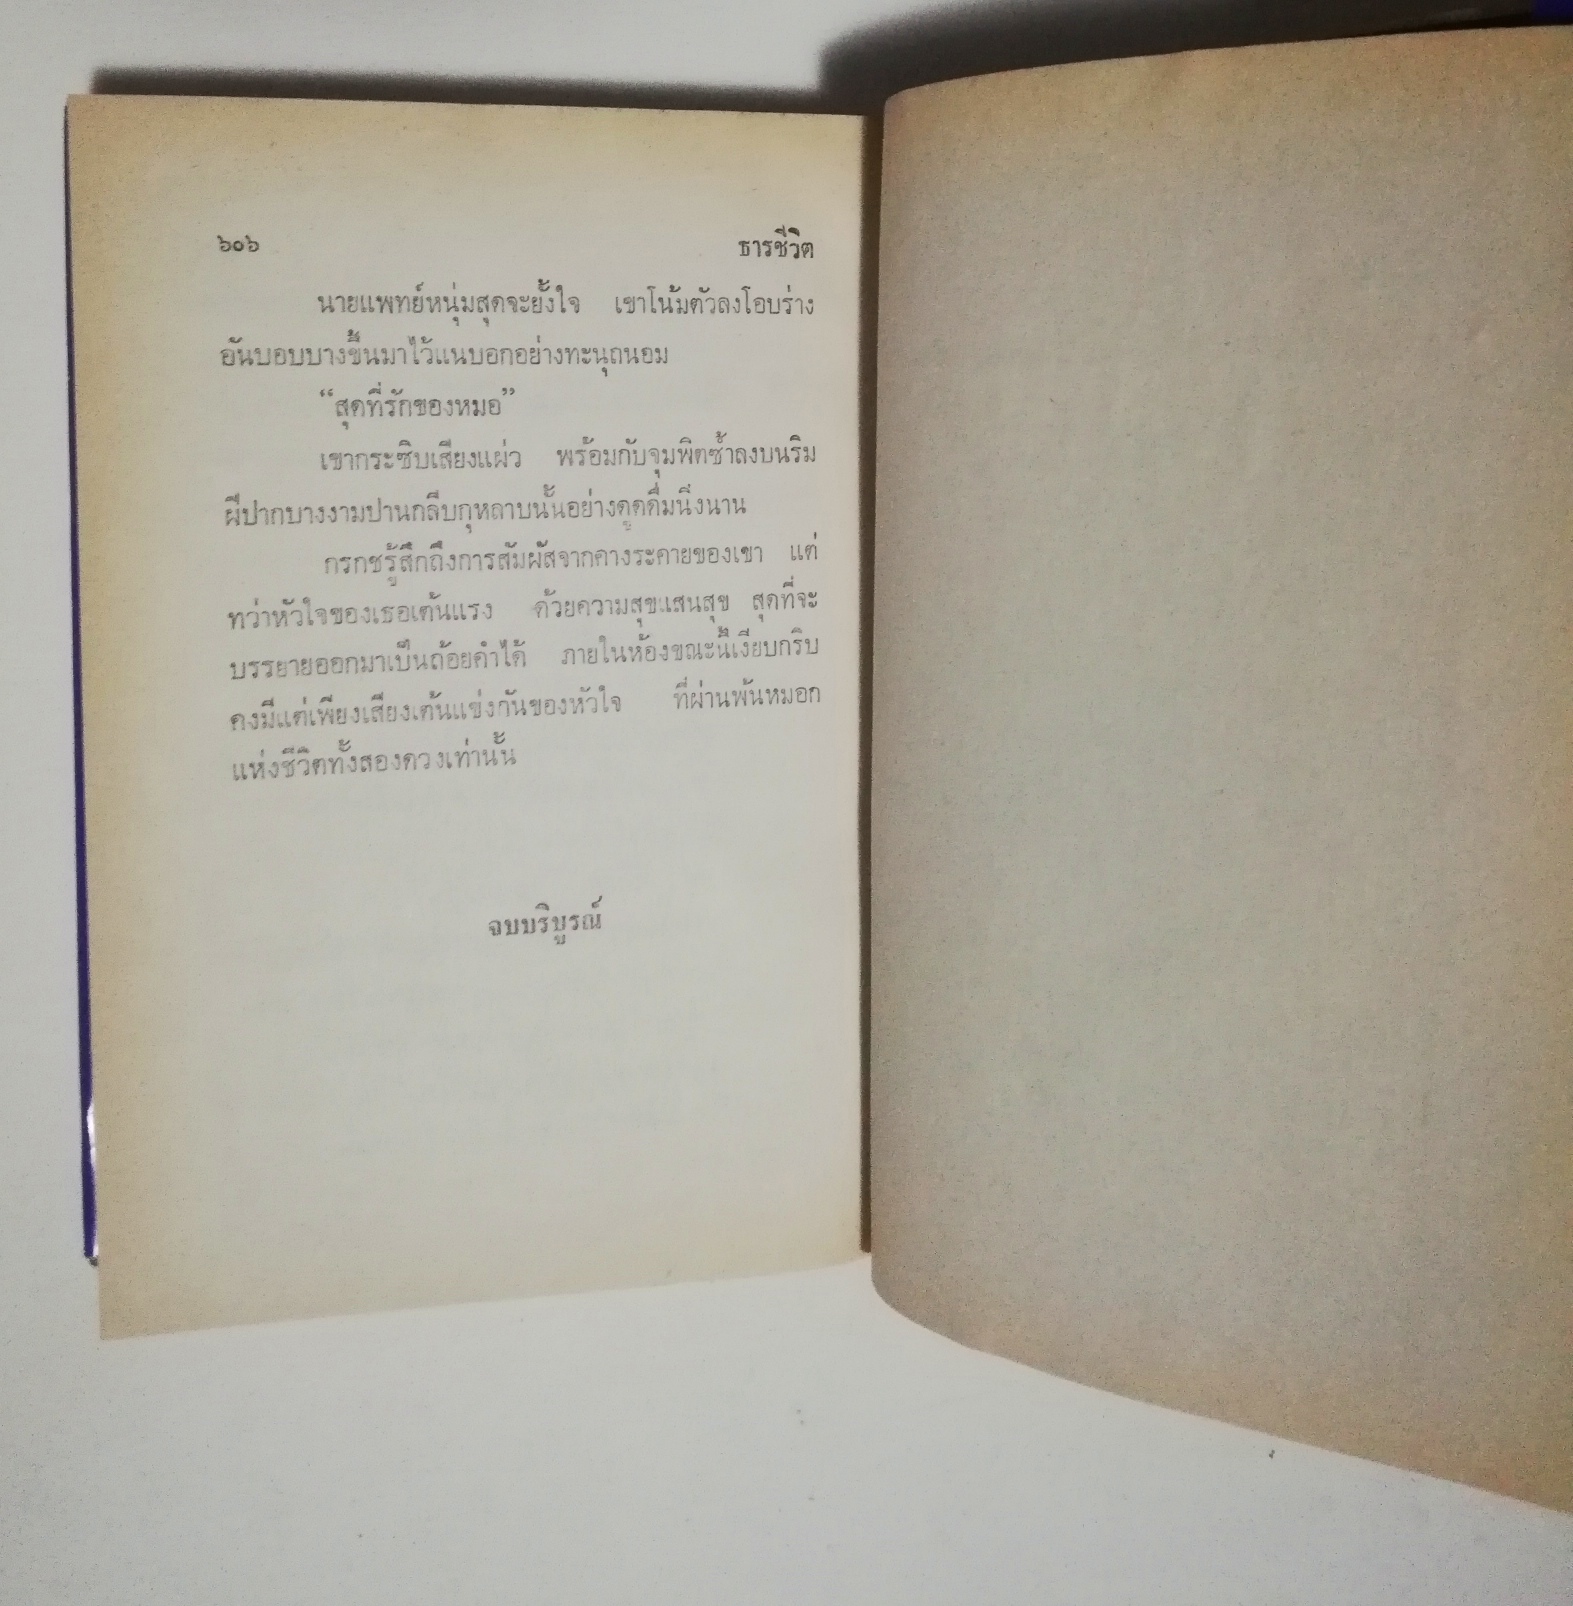 ๖๐๖ ธารชีวิต
นายแพทย์หนุ่มสุดจะยั้งใจ เขาโน้มตัวลงโอบร่าง
อันบอบบางขึ้นมาไว้แนบอกอย่างทะนุถนอม
“สุดที่รักของหมอ”
เขากระซิบเสียงแผ่ว พร้อมกับจุมพิตซ้ำลงบนริม
ฝีปากบางงามปานกลีบกุหลาบนั้นอย่างดูดดื่มนิ่งนาน
กรกชรู้สึกถึงการสัมผัสจากคางระคายของเขา แต่
ทว่าหัวใจของเธอเต้นแรง ด้วยความสุขแสนสุข สุดที่จะ
บรรยายออกมาเป็นถ้อยคำได้ ภายในห้องขณะนี้เงียบกริบ
คงมีแต่เพียงเสียงเต้นแข่งกันของหัวใจ ที่ผ่านพ้นหมอก
แห่งชีวิตทั้งสองดวงเท่านั้น
จบบริบูรณ์